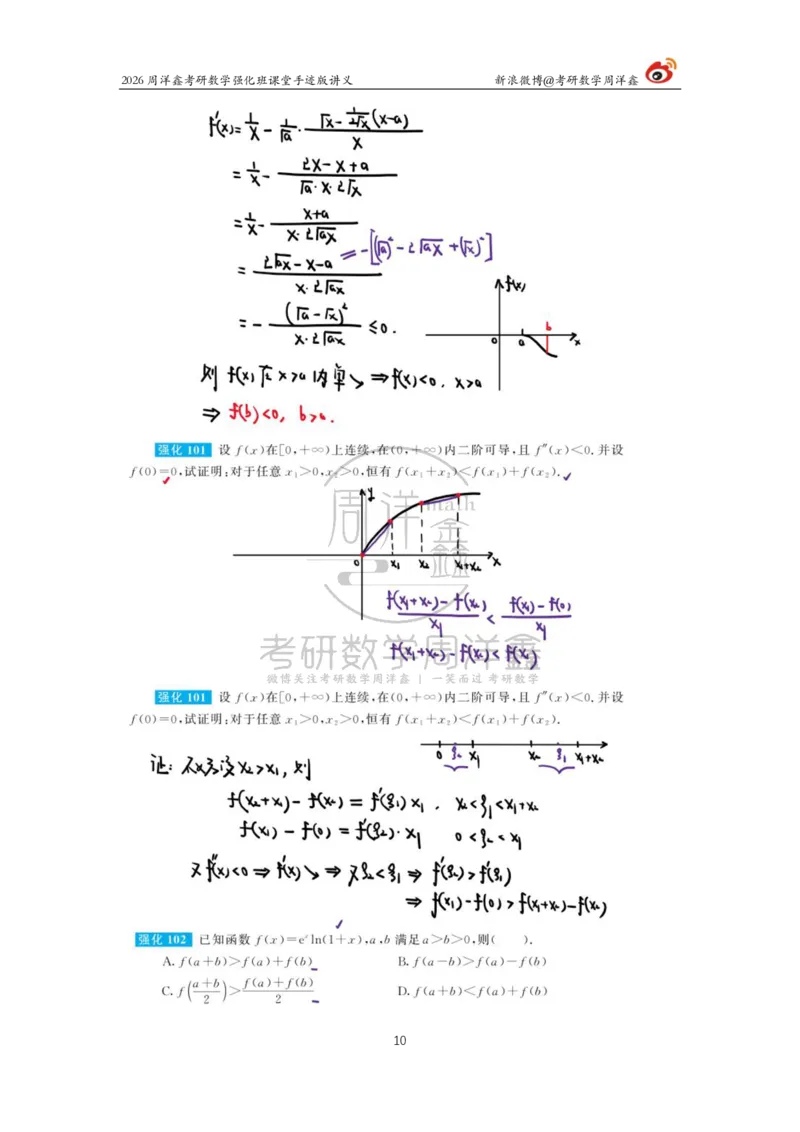 2026 周洋鑫考研数学强化班课堂手迹版讲义 新浪微博@考研数学周洋鑫
f'(x)= 1/x − 1/√a · (√x − 1/(2√x)(x−a))/x
= 1/x − (2x−x+a)/(√a·x·2√x)
= 1/x − (x+a)/(x·2√ax)
= (2√ax−x−a)/(x·2√ax) = −[(√a)²−2√ax+(√x)²]
= − (√a−√x)²/(x·2√ax) ≤0.
f(x)
b
0 a x
则 f(x)在x>a内单↘ ⇒f(x)<0, x>a
⇒ f(b)<0, b>a.
强化 101 设 f(x)在[0,+∞)上连续,在(0,+∞)内二阶可导,且 f″(x)<0.并设
f(0)=0,试证明:对于任意 x₁>0,x₂>0,恒有 f(x₁+x₂)<f(x₁)+f(x₂).
y
0 x₁ x₂ x₁+x₂ x
周洋鑫
math
(f(x₁+x₂)−f(x₂))/x₁ < (f(x₁)−f(0))/x₁
f(x₁+x₂)−f(x₂)<f(x₁)
考研数学周洋鑫
微博关注考研数学周洋鑫 | 一笑而过 考研数学
强化 101 设 f(x)在[0,+∞)上连续,在(0,+∞)内二阶可导,且 f″(x)<0.并设
f(0)=0,试证明:对于任意 x₁>0,x₂>0,恒有 f(x₁+x₂)<f(x₁)+f(x₂).
0 ξ₂ x₁ x₂ ξ₁ x₁+x₂
证: 不妨设x₂>x₁, 则
f(x₂+x₁)−f(x₂)=f'(ξ₁)x₁ , x₂<ξ₁<x₁+x₂
f(x₁)−f(0)=f'(ξ₂)·x₁ 0<ξ₂<x₁
又f″(x)<0⇒f'(x)↘⇒又ξ₂<ξ₁⇒ f'(ξ₂)>f'(ξ₁)
⇒ f(x₁)−f(0)>f(x₁+x₂)−f(x₂)
强化 102 已知函数 f(x)=eˣln(1+x),a,b 满足a>b>0,则( ).
A. f(a+b)>f(a)+f(b) B. f(a−b)>f(a)−f(b)
C. f((a+b)/2)>(f(a)+f(b))/2 D. f(a+b)<f(a)+f(b)
10